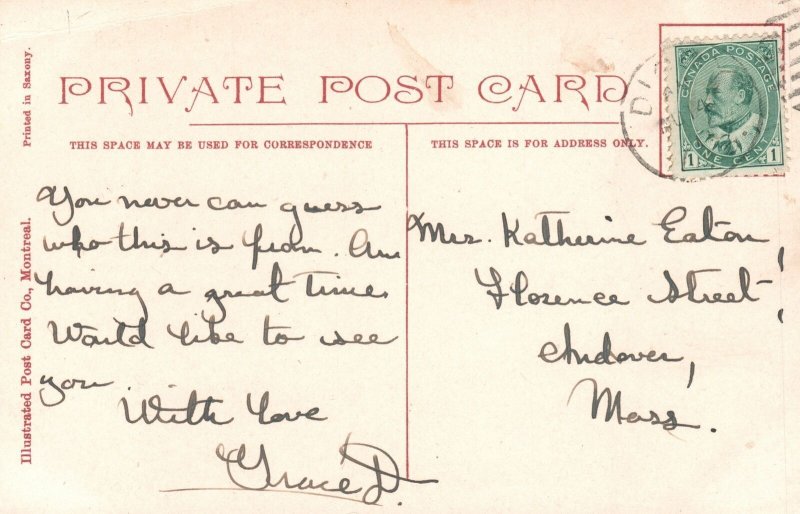 PRIVATE POST CARD
THIS SPACE MAY BE USED FOR CORRESPONDENCE
THIS SPACE IS FOR ADDRESS ONLY.
Printed in Saxony.
Illustrated Post Card Co., Montreal.
CANADA POSTAGE
ONE CENT
1 1
You never can guess
who this is from. Am
having a great time.
Would like to see
you.
With Love
Grace D.
Mrs. Katherine Eaton,
Florence Street,
Andover,
Mass.